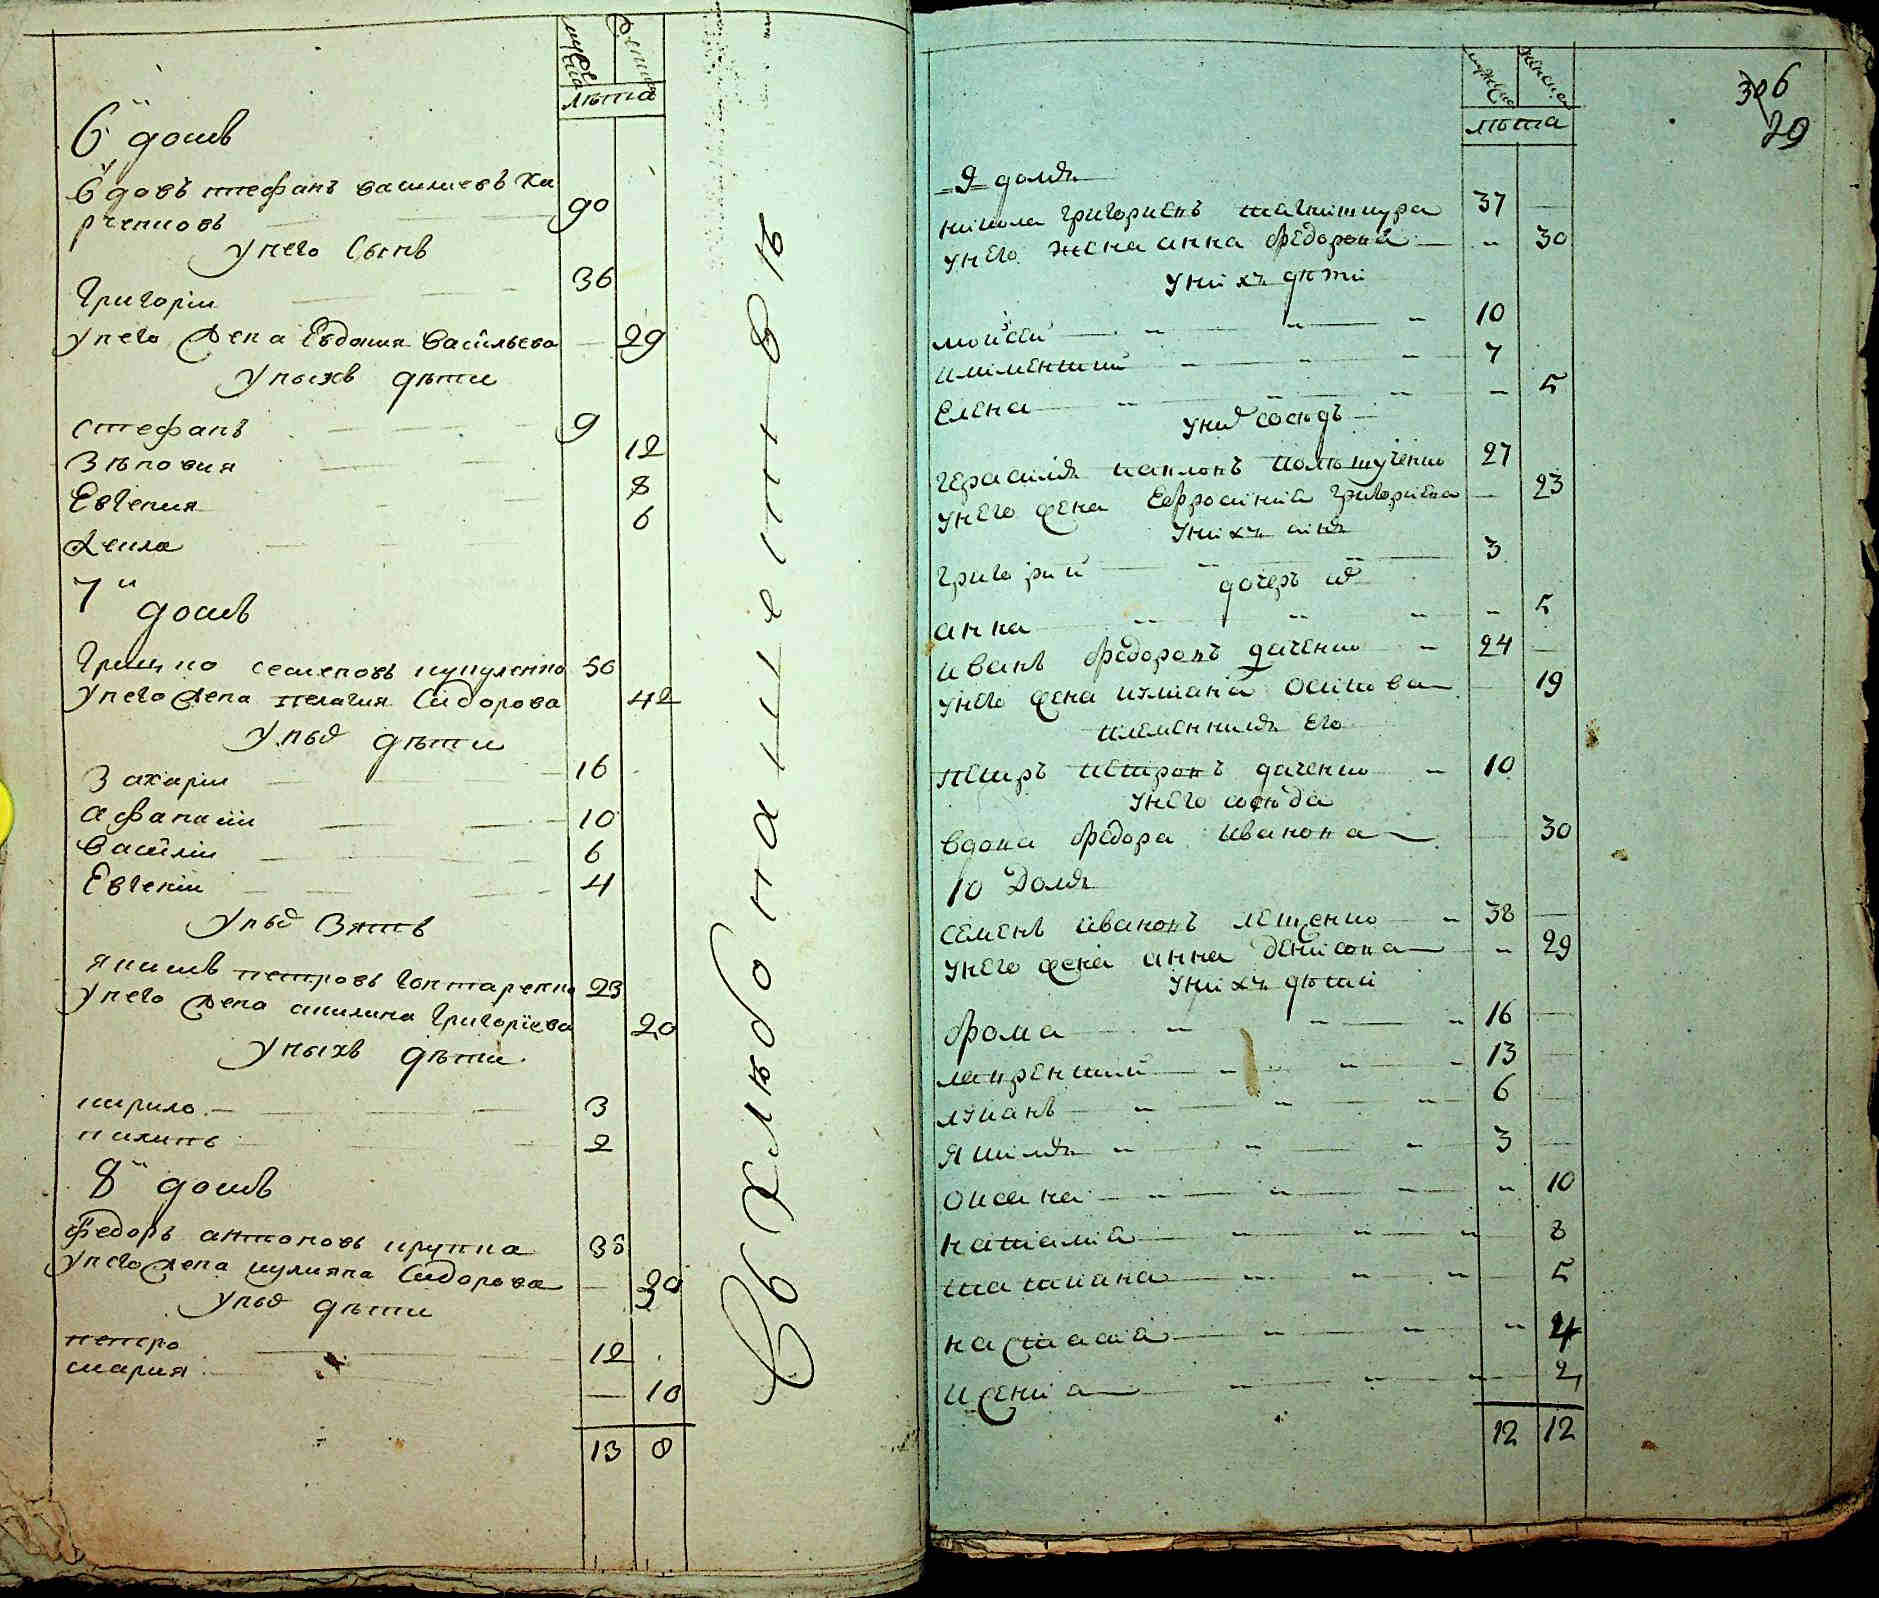 мужеска
женска
лѣта
6й домъ
Вдовъ стефанъ василиевъ Ха
рченковъ 90
У него Сынъ
Григоріи 36
У него жена Евдокия васильева 29
У ныхъ дѣти
стефанъ 9
Зѣновия 12
Евгения 8
6
7й домъ
семеновъ 50
У него жена пелагия Сидорова 42
У ныхъ дѣти
Захаріи 16
афанасіи 10
василіи 6
Евгеніи 4
У ныхъ Зятъ
якимъ петровъ Гонтаренко 23
У него жена акилина Григоріева 20
У ныхъ дѣти
кирило 3
2
8й домъ
Федоръ антоновъ крупка 38
У него жена иулияна Сидорова 30
У ныхъ дѣти
петро 12
мария 10
13 8
Съ хлѣбопашества
мужеска
женска
лѣта
306
29
9 домъ
никола григориевъ 37
у него жена анна федорова 30
у нихъ дѣти
мойсей 10
климентий 7
Елена 5
у них сосѣдъ
герасимъ 27
у него жена Ефросиния григориева 23
у нихъ синъ
григорий 3
дочеръ их
анна 5
иванъ федоровъ даченко 24
у него жена иулиана осипова 19
племенникъ его
петръ петровъ даченко 10
у него сосѣда
вдова федора иванова 30
10 Домъ
семенъ ивановъ лещенко 38
у него жена анна денисова 29
у нихъ дѣтий
фома 16
лаврентий 13
лукянъ 6
якимъ 3
оксана 10
наталия 8
татияна 5
настасия 4
ксения 2
12 12